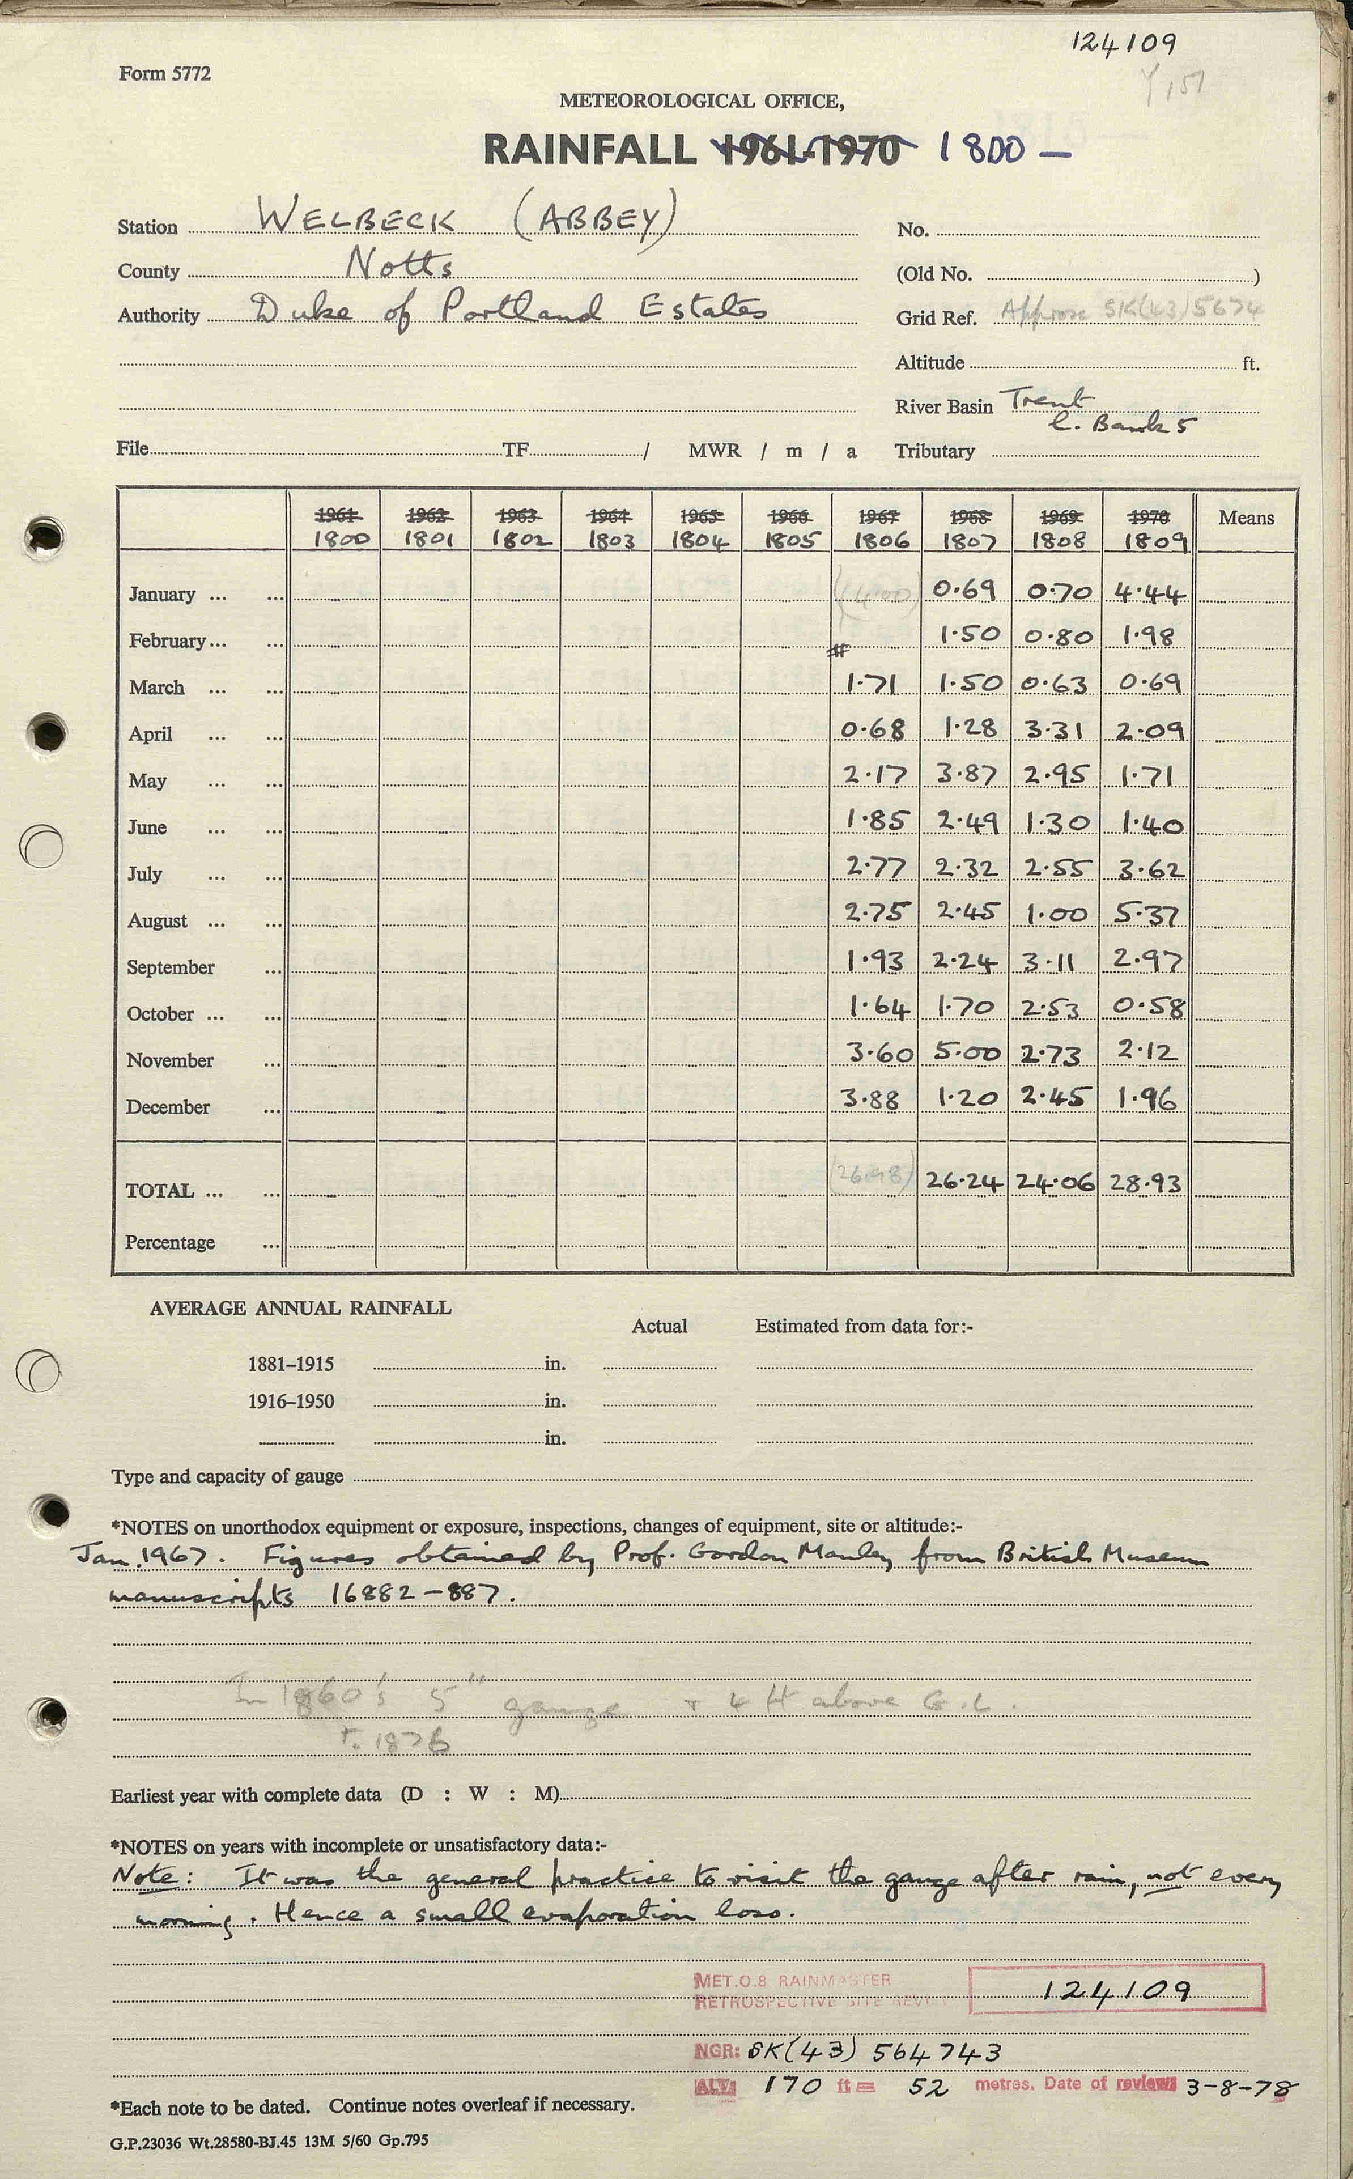 124109
Form 5772
Y151
METEOROLOGICAL OFFICE,
RAINFALL 1961-1970 1800 –
Station WELBECK (ABBEY) No.
County Notts (Old No. )
Authority Duke of Portland Estates Grid Ref. Approx SK(43)5674
Altitude ft.
River Basin Trent
L. Bank 5
File TF / MWR / m / a Tributary
1961 1962 1963 1964 1965 1966 1967 1968 1969 1970 Means
1800 1801 1802 1803 1804 1805 1806 1807 1808 1809
January ... ... (4.00) 0.69 0.70 4.44
February ... ... # 1.50 0.80 1.98
March ... ... 1.71 1.50 0.63 0.69
April ... ... 0.68 1.28 3.31 2.09
May ... ... 2.17 3.87 2.95 1.71
June ... ... 1.85 2.49 1.30 1.40
July ... ... 2.77 2.32 2.55 3.62
August ... ... 2.75 2.45 1.00 5.37
September ... 1.93 2.24 3.11 2.97
October ... ... 1.64 1.70 2.53 0.58
November ... 3.60 5.00 2.73 2.12
December ... 3.88 1.20 2.45 1.96
TOTAL ... ... (26.98) 26.24 24.06 28.93
Percentage ...
AVERAGE ANNUAL RAINFALL
Actual Estimated from data for:-
1881–1915 in.
1916–1950 in.
in.
Type and capacity of gauge
*NOTES on unorthodox equipment or exposure, inspections, changes of equipment, site or altitude:-
Jan. 1967. Figures obtained by Prof. Gordon Manley from British Museum
manuscripts 16882–887.
In 1860's 5" gauge + 4 ft above G.L.
1876
Earliest year with complete data (D : W : M)
*NOTES on years with incomplete or unsatisfactory data:-
Note: It was the general practice to visit the gauge after rain, not every
morning. Hence a small evaporation loss.
MET.O.8 RAINMASTER
RETROSPECTIVE SITE REVIEW 124109
NGR: SK(43) 564743
ALT: 170 ft = 52 metres. Date of review 3-8-78
*Each note to be dated. Continue notes overleaf if necessary.
G.P.23036 Wt.28580-BJ.45 13M 5/60 Gp.795